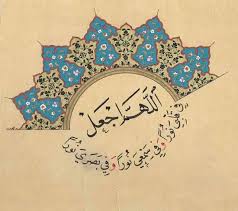 اللهم اجعل
في قلبي نوراً وفي سمعي نوراً وفي بصري نوراً